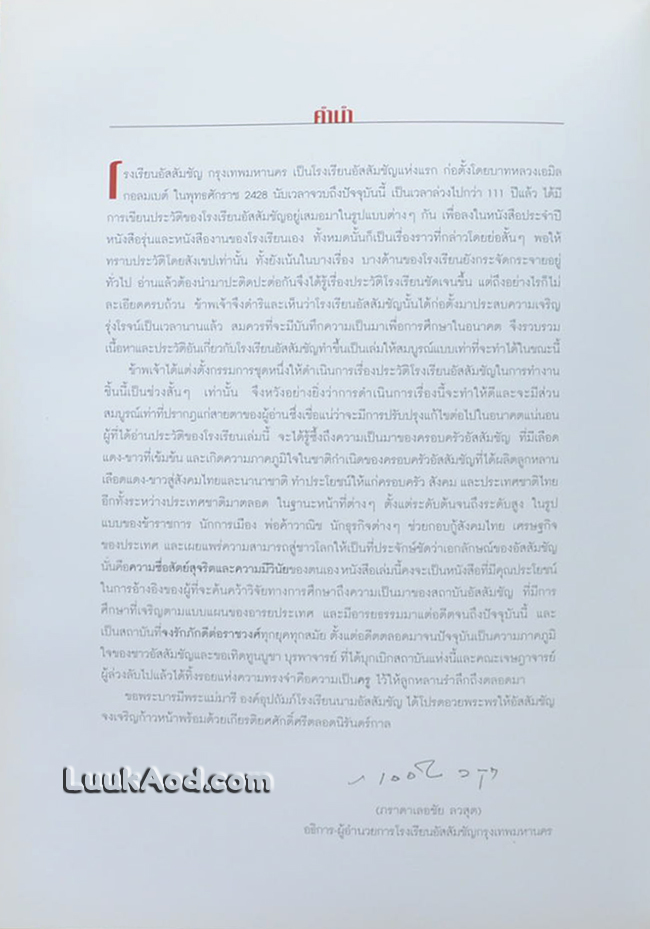 คำนำ
โรงเรียนอัสสัมชัญ กรุงเทพมหานคร เป็นโรงเรียนอัสสัมชัญแห่งแรก ก่อตั้งโดยบาทหลวงเอมิล
กอลมเบต์ ในพุทธศักราช 2428 นับเวลาจวบถึงปัจจุบันนี้ เป็นเวลาล่วงไปกว่า 111 ปีแล้ว ได้มี
การเขียนประวัติของโรงเรียนอัสสัมชัญอยู่เสมอมาในรูปแบบต่างๆ กัน เพื่อลงในหนังสือประจำปี
หนังสือรุ่นและหนังสืองานของโรงเรียนเอง ทั้งหมดนั้นก็เป็นเรื่องราวที่กล่าวโดยย่อสั้นๆ พอให้
ทราบประวัติโดยสังเขปเท่านั้น ทั้งยังเน้นในบางเรื่อง บางด้านของโรงเรียนยังกระจัดกระจายอยู่
ทั่วไป อ่านแล้วต้องนำมาปะติดปะต่อกันจึงได้รู้เรื่องประวัติโรงเรียนชัดเจนขึ้น แต่ถึงอย่างไรก็ไม่
ละเอียดครบถ้วน ข้าพเจ้าจึงดำริและเห็นว่าโรงเรียนอัสสัมชัญนั้นได้ก่อตั้งมาประสบความเจริญ
รุ่งโรจน์เป็นเวลานานแล้ว สมควรที่จะมีบันทึกความเป็นมาเพื่อการศึกษาในอนาคต จึงรวบรวม
เนื้อหาและประวัติอันเกี่ยวกับโรงเรียนอัสสัมชัญทำขึ้นเป็นเล่มให้สมบูรณ์แบบเท่าที่จะทำได้ในขณะนี้
ข้าพเจ้าได้แต่งตั้งกรรมการชุดหนึ่งให้ดำเนินการเรื่องประวัติโรงเรียนอัสสัมชัญในการทำงาน
ชิ้นนี้เป็นช่วงสั้นๆ เท่านั้น จึงหวังอย่างยิ่งว่าการดำเนินการเรื่องนี้จะทำให้ดีและจะมีส่วน
สมบูรณ์เท่าที่ปรากฏแก่สายตาของผู้อ่านซึ่งเชื่อแน่ว่าจะมีการปรับปรุงแก้ไขต่อไปในอนาคตแน่นอน
ผู้ที่ได้อ่านประวัติของโรงเรียนเล่มนี้ จะได้รู้ซึ้งถึงความเป็นมาของครอบครัวอัสสัมชัญ ที่มีเลือด
แดง-ขาวที่เข้มข้น และเกิดความภาคภูมิใจในชาติกำเนิดของครอบครัวอัสสัมชัญที่ได้ผลิตลูกหลาน
เลือดแดง-ขาวสู่สังคมไทยและนานาชาติ ทำประโยชน์ให้แก่ครอบครัว สังคม และประเทศชาติไทย
อีกทั้งระหว่างประเทศชาติมาตลอด ในฐานะหน้าที่ต่างๆ ตั้งแต่ระดับต้นจนถึงระดับสูง ในรูป
แบบของข้าราชการ นักการเมือง พ่อค้าวาณิช นักธุรกิจต่างๆ ช่วยกอบกู้สังคมไทย เศรษฐกิจ
ของประเทศ และเผยแพร่ความสามารถสู่ชาวโลกให้เป็นที่ประจักษ์ชัดว่าเอกลักษณ์ของอัสสัมชัญ
นั่นคือความซื่อสัตย์สุจริตและความมีวินัยของตนเอง หนังสือเล่มนี้คงจะเป็นหนังสือที่มีคุณประโยชน์
ในการอ้างอิงของผู้ที่จะค้นคว้าวิจัยทางการศึกษาถึงความเป็นมาของสถาบันอัสสัมชัญ ที่มีการ
ศึกษาที่เจริญตามแบบแผนของอารยประเทศ และมีอารยธรรมมาแต่อดีตจนถึงปัจจุบันนี้ และ
เป็นสถาบันที่จงรักภักดีต่อราชวงศ์ทุกยุคทุกสมัย ตั้งแต่อดีตตลอดมาจนปัจจุบันเป็นความภาคภูมิ
ใจของชาวอัสสัมชัญและขอเทิดทูนบูชา บุรพาจารย์ ที่ได้บุกเบิกสถาบันแห่งนี้และคณะเจษฎาจารย์
ผู้ล่วงลับไปแล้วได้ทิ้งรอยแห่งความทรงจำคือความเป็นครู ไว้ให้ลูกหลานรำลึกถึงตลอดมา
ขอพระบารมีพระแม่มารี องค์อุปถัมภ์โรงเรียนนามอัสสัมชัญ ได้โปรดอวยพระพรให้อัสสัมชัญ
จงเจริญก้าวหน้าพร้อมด้วยเกียรติยศศักดิ์ศรีตลอดนิรันดร์กาล
LuukAod.com
(ภราดาเลอชัย ลวสุต)
อธิการ-ผู้อำนวยการโรงเรียนอัสสัมชัญกรุงเทพมหานคร